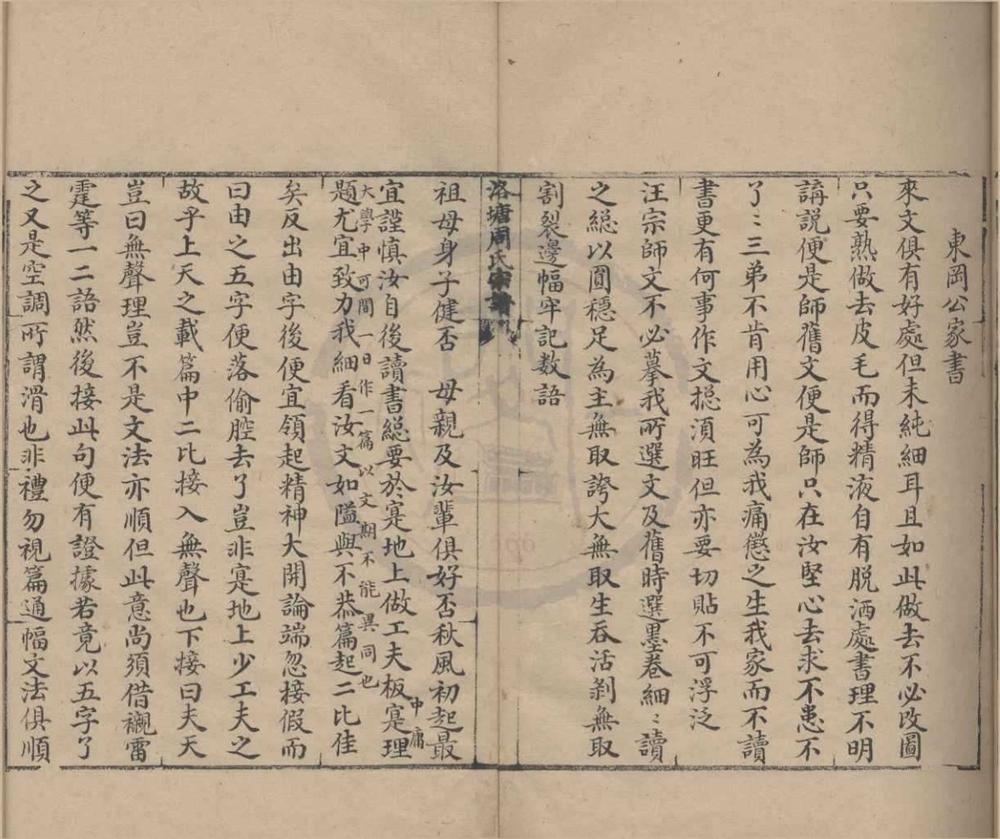 東岡公家書
來文俱有好處但未純細耳且如此做去不必改圖
只要熟做去皮毛而得精液自有脱洒處書理不明
講說便是師舊文便是師只在汝堅心去求不患不
了〻三弟不肯用心可為我痛懲之生我家而不讀
書更有何事作文揔湏旺但亦要切貼不可浮泛
汪宗師文不必摹我所選文及舊時選墨卷細〻讀
之縂以圓穩足為主無取誇大無取生吞活剝無取
割裂邊幅牢記数語
洛塘周氏宗譜
祖母身子健否　母親及汝輩俱好否秋風初起最
宜謹慎汝自後讀書縂要於寔地上做工夫板寔理中庸
大學中可間一日作一篇以文期不能異同也
題尤宜致力我細看汝文如隘與不恭篇起二比佳
矣反出由字後便宜領起精神大開論端忽接假而
曰由之五字便落偷腔去了豈非寔地上少工夫之
故乎上天之載篇中二比接入無聲也下接曰夫天
豈曰無聲理豈不是文法亦順但此意尚須借襯雷
霆等一二語然後接此句便有證據若竟以五字了
之又是空調所謂滑也非禮勿視篇通幅文法俱順